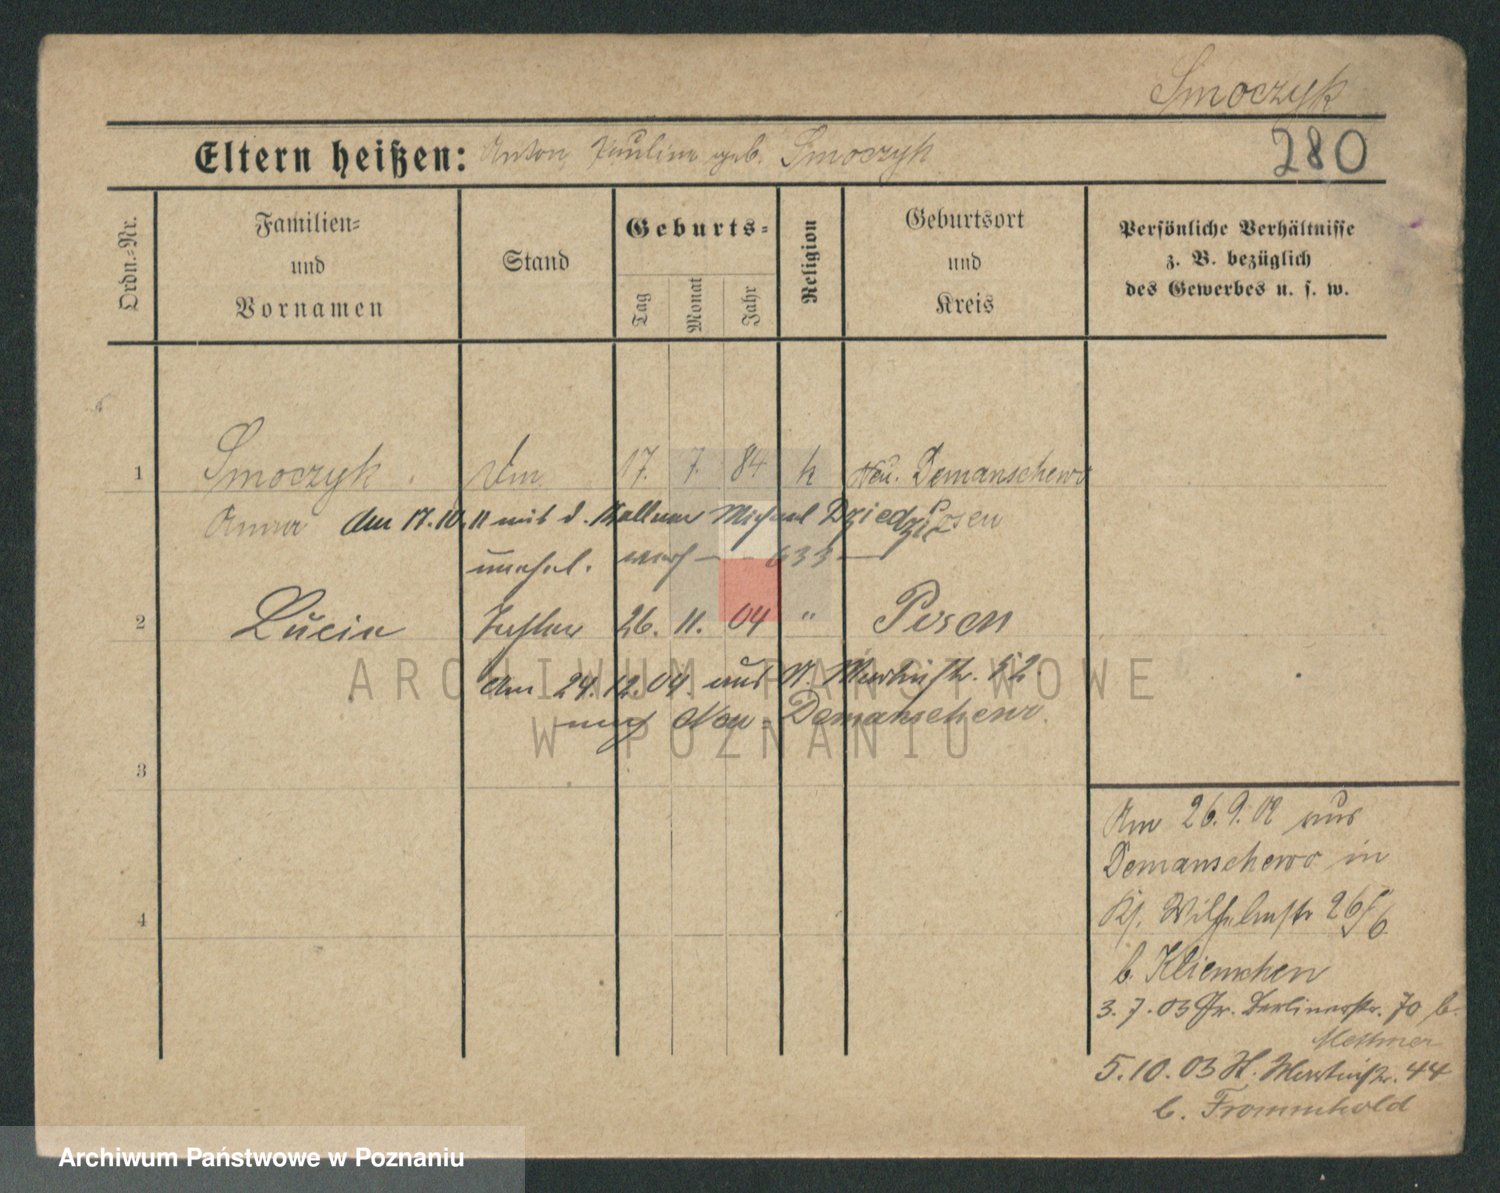 Smoczyk
Eltern heißen: Anton Paulina geb. Smoczyk
280
Ordn.-Nr.
Familien- und Vornamen
Stand
Geburts-
Tag
Monat
Jahr
Religion
Geburtsort und Kreis
Persönliche Verhältnisse
z. B. bezüglich
des Gewerbes u. s. w.
1 Smoczyk 17. 7. 84 k Neu. Demanschewo
Anna am 17.10.11 mit d. Kellner Michael Dziedzic Posen
unehel. 633
2 Lucia Tochter 26. 11. 04 " Posen
Am 24.12.04 aus St. Martinstr. 52.
nach Neu-Demanschewo.
3
4
Am 26.9.02 aus
Demanschewo in
Wilhelmstr 26
b. Kliemchen
3.7.03 Gr. Berlinerstr. 70 b.
Methner
5.10.03 St. Martinstr. 44
b. Frommhold
ARCHIWUM PAŃSTWOWE
W POZNANIU
Archiwum Państwowe w Poznaniu